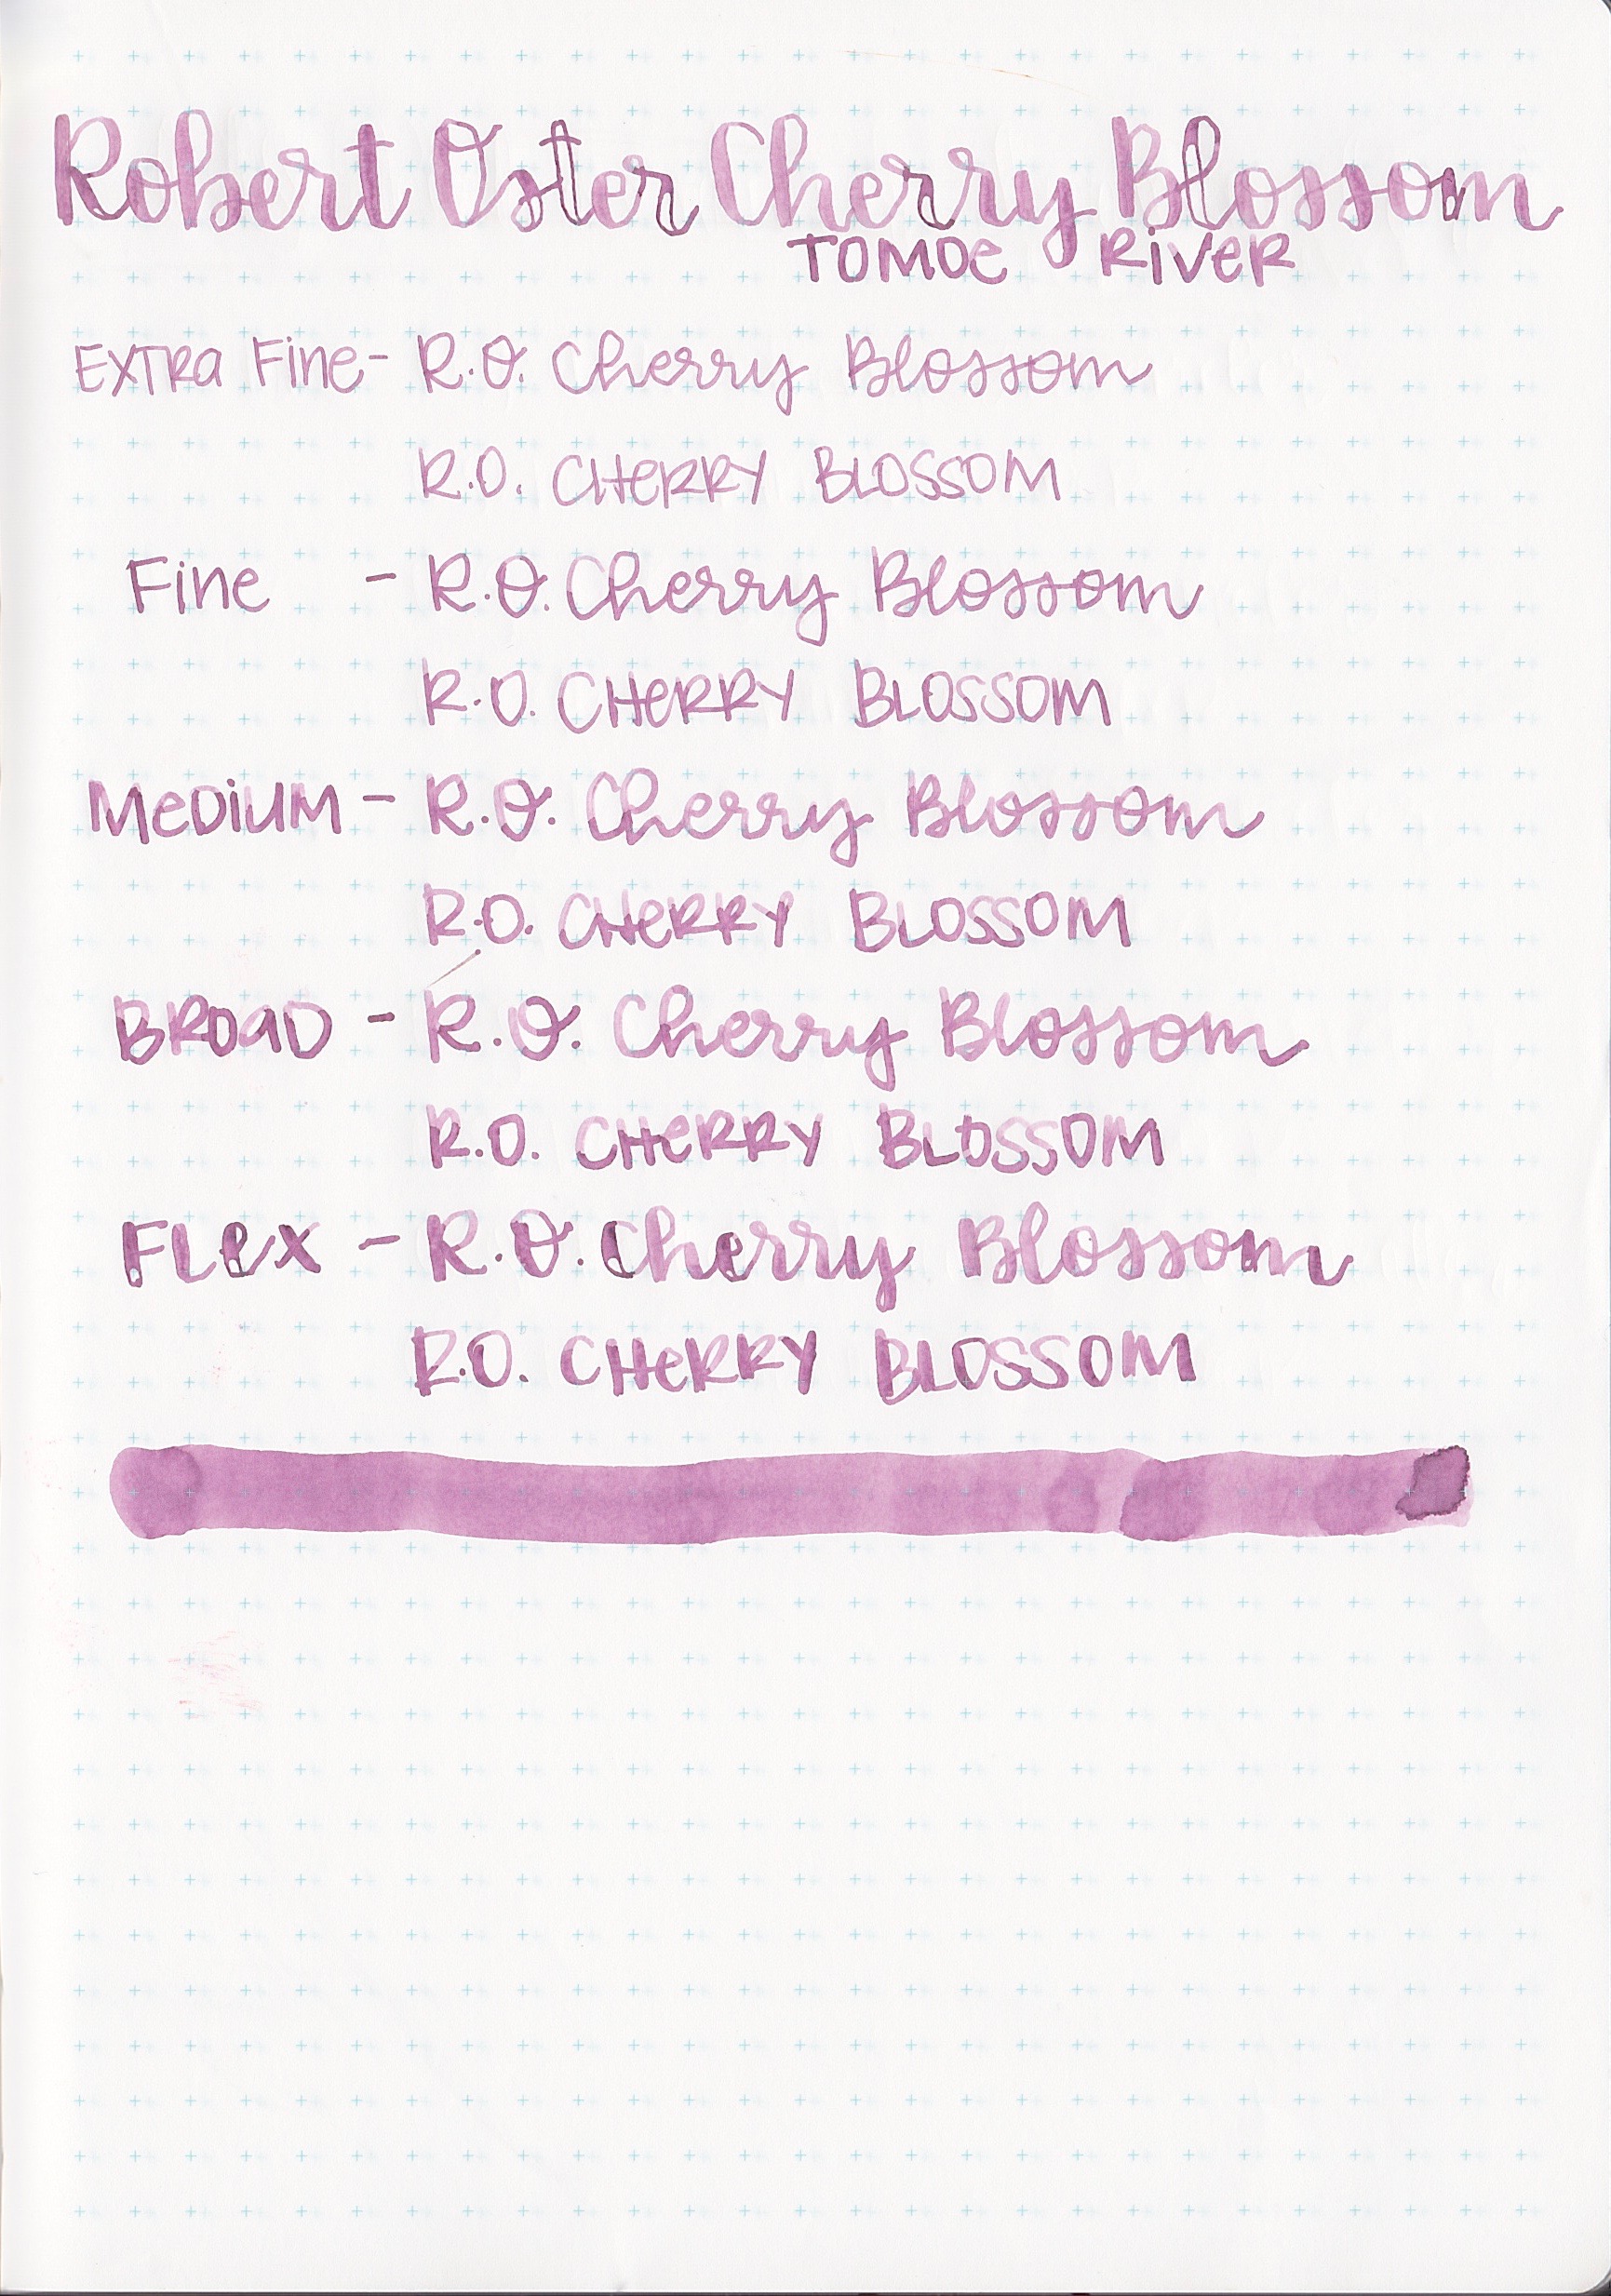 Robert Oster Cherry Blossom
TOMOE RIVER
EXTRA FINE - R.O. Cherry Blossom
R.O. CHERRY BLOSSOM
FINE - R.O. Cherry Blossom
R.O. CHERRY BLOSSOM
MEDIUM - R.O. Cherry Blossom
R.O. CHERRY BLOSSOM
BROAD - R.O. Cherry Blossom
R.O. CHERRY BLOSSOM
FLEX - R.O. Cherry Blossom
R.O. CHERRY BLOSSOM